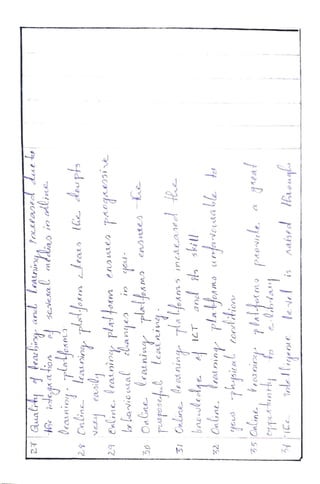 27 Quality of teaching and learning increased due to
the integration of several medias in online
learning platforms
28 Online learning platform clears the doupts
very easily
29 Online learning platform ensures progressive
behavioural changes in you.
30 Online learning platforms ensures the
purposeful learning.
31 Online learning platforms increased the
knowledge of ICT and its skill
32 Online learning platforms unfavourable to
your physical condition
33 Online learning platforms provide a great
oppertunity to
34 The intelligence level is raised through